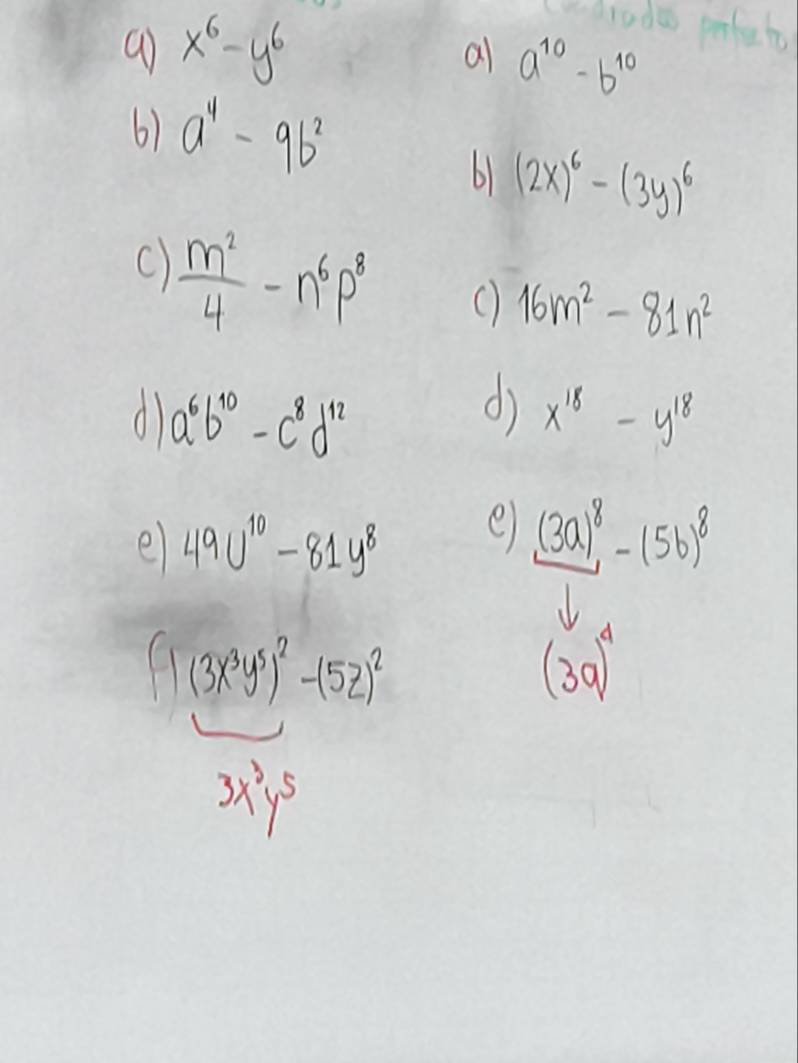 Cuadrados perfecto
a) x⁶ - y⁶
b) a⁴ - 9b²
c) m²/4 - n⁶p⁸
d) a⁶b¹⁰ - c⁸d¹²
e) 49U¹⁰ - 81y⁸
f) (3x³y⁵)² - (5z)²
3x³y⁵
a) a¹⁰ - b¹⁰
b) (2x)⁶ - (3y)⁶
c) 16m² - 81n²
d) x¹⁸ - y¹⁸
e) (3a)⁸ - (5b)⁸
↓
(3a)⁴